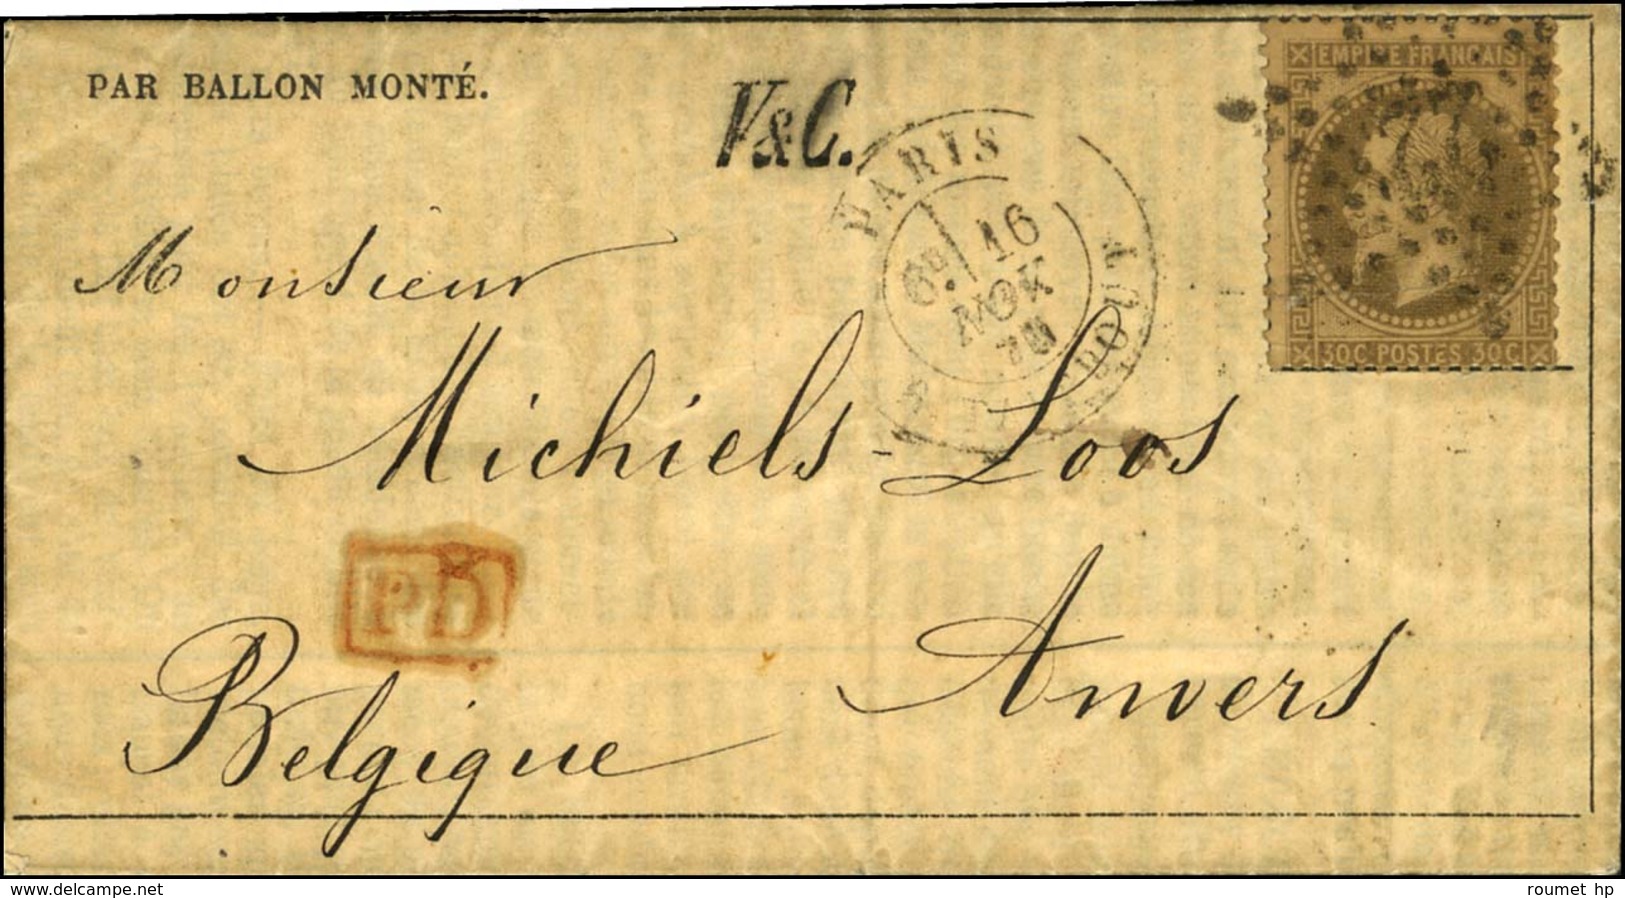 PAR BALLON MONTÉ.
V&C.
PARIS
6E 16
NOV
70
R. TAITBOUT
EMPIRE FRANÇAIS
30C POSTES 30C
Monsieur
Michiels-Loos
PD
Anvers
Belgique
www.delcampe.net
roumet hp